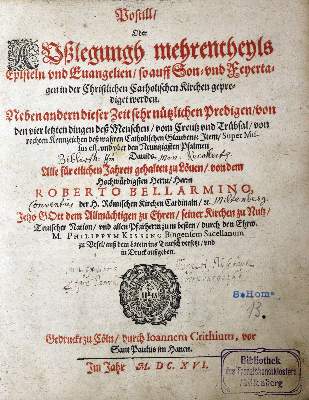 Postill/
Oder
Außlegungh mehrentheyls
Episteln vnd Euangelien / so auff Son- vnd Feyerta-
gen in der Christlichen Catholischen Kirchen gepre-
diget werden.
Neben andern dieser Zeit sehr nützlichen Predigen / von
den vier letzten dingen deß Menschen / vom Creutz vnd Trübsal / von
rechten Kennzeichen deß wahren Catholischen Glaubens: Item / Super Mis-
sus est, vnd vber den Neuntzigsten Psalmen
Dauids.
Alle für etlichen Jahren gehalten zu Löuen / von dem
Hochwürdigsten Herrn / Herrn
ROBERTO BELLARMINO,
Conventus
der H. Römischen Kirchen Cardinaln / ꝛc.
Miltenberg.
Jetzo Gott dem Allmächtigen zu Ehren / seiner Kirchen zu Nutz /
Teutscher Nation / vnd allen Pfarherrn zum besten / durch den Ehrw.
M. PHILIPPVM KISSING Bingensem Sacellanum
zu Vrsel / auß dem Latein ins Teutsch versetzt / vnd
in Druck außgeben.
S. Hom.
13.
Gedruckt zu Cöln / durch Ioannem Crithium, vor
Sant Paulus im Hanen.
Im Jahr M. DC. XVI.
Bibliothek
des Franziskanerklosters
Miltenberg